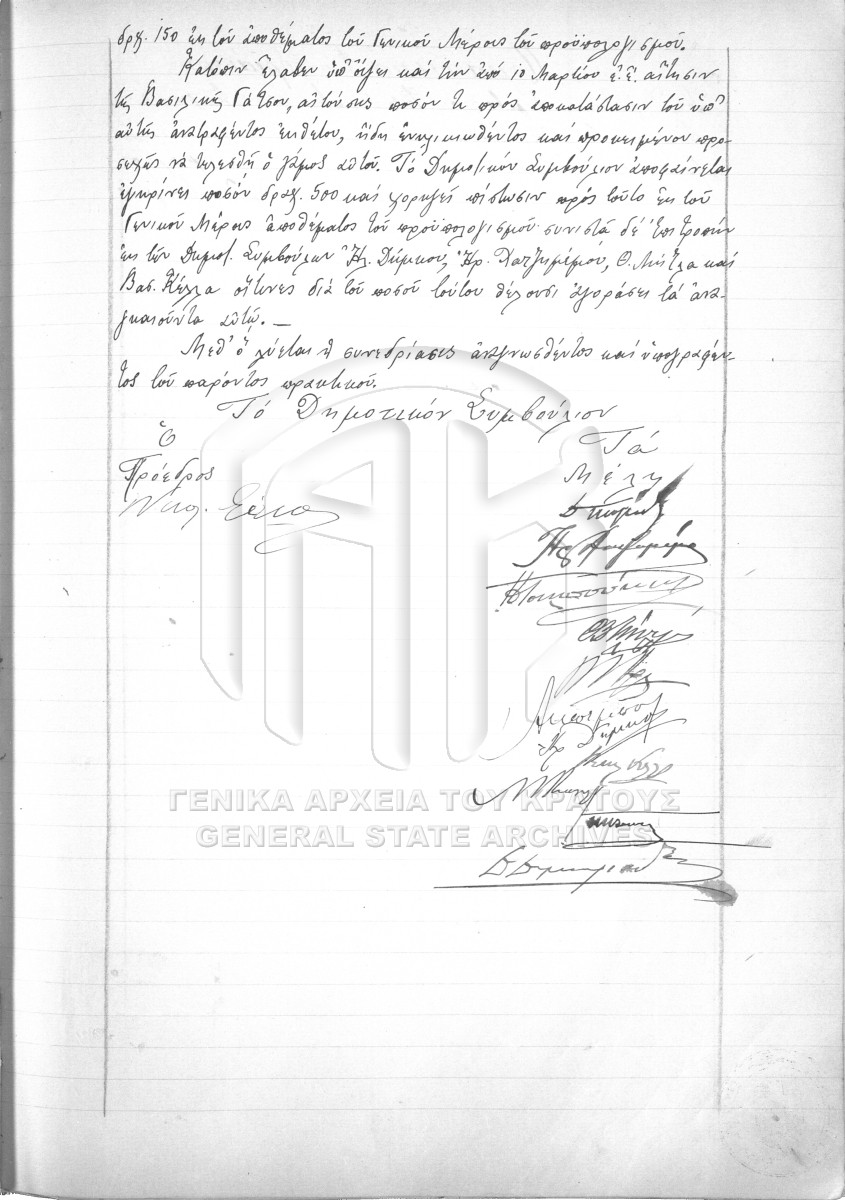 δρχ. 150 ἐκ τοῦ ἀποθέματος τοῦ Γενικοῦ Μέρους τοῦ προϋπολογισμοῦ.
Κατόπιν ἔλαβεν ὑπ' ὄψει καί τήν ἀπό 10 Μαρτίου ἐ.ἔ. αἴτησιν
τῆς Βασιλικῆς Γάτσου, αἰτούσης ποσόν τι πρός ἀποκατάστασιν τοῦ ὑπ'
αὐτῆς ἀνατραφέντος ἐκθέτου, ἤδη ἐνηλικιωθέντος καί προκειμένου προ-
σεχῶς νά τελεσθῇ ὁ γάμος αὐτοῦ. Τό Δημοτικόν Συμβούλιον ἀποφαίνεται
ἐγκρίνει ποσόν δραχ. 500 καί χορηγεῖ πίστωσιν πρός τοῦτο ἐκ τοῦ
Γενικοῦ Μέρους ἀποθέματος τοῦ προϋπολογισμοῦ συνιστᾷ δέ Ἐπιτροπήν
ἐκ τῶν Δημοτ. Συμβούλων Ἠλ. Δήμκου, Ἠρ. Χατζημέμου, Θ. Μίτλα καί
Βασ. Κέλλα οἵτινες διά τοῦ ποσοῦ τούτου θέλουσι ἀγοράσει τά ἀνα-
γκαιοῦντα αὐτῷ. —
Μεθ' ὅ λύεται ἡ συνεδρίασις ἀναγνωσθέντος καί ὑπογραφέν-
τος τοῦ παρόντος πρακτικοῦ.
Τό Δημοτικόν Συμβούλιον
Ὁ
Πρόεδρος
Τά
Μέλη
ΓΕΝΙΚΑ ΑΡΧΕΙΑ ΤΟΥ ΚΡΑΤΟΥΣ
GENERAL STATE ARCHIVES